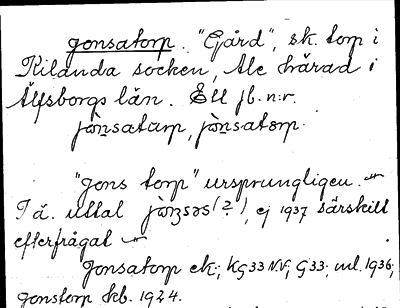 Jonsatorp. "Gård", sk. torp i
Kilanda socken, Ale härad i
Älfsborgs län. Ett jb. n:r.
jònsatarp, jònsatorp.
"Jons torp" ursprungligen.
I ä. uttal (?), ej 1937 särskilt
efterfrågat
Jonsatorp ek; KG33 N.V; G33; ml. 1936;
Jonstorp kb. 1924.